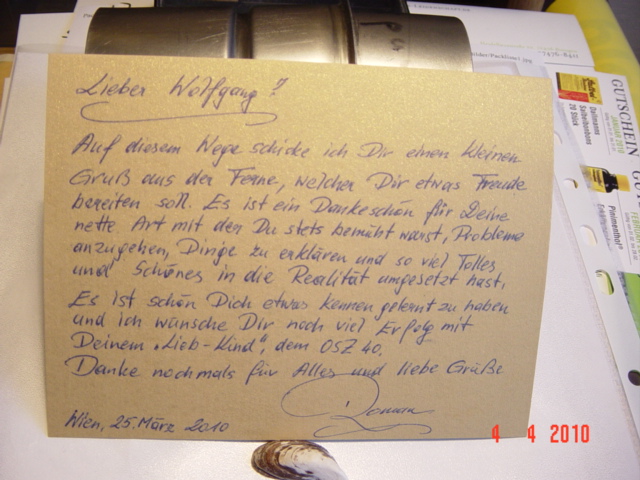 Lieber Wolfgang!
Auf diesem Wege schicke ich Dir einen kleinen
Gruß aus der Ferne, welcher Dir etwas Freude
bereiten soll. Es ist ein Dankeschön für Deine
nette Art mit der Du stets bemüht warst, Probleme
anzugehen, Dinge zu erklären und so viel Tolles
und Schönes in die Realität umgesetzt hast.
Es ist schön Dich etwas kennen gelernt zu haben
und ich wünsche Dir noch viel Erfolg mit
Deinem "Lieb-Kind", dem OSZ 40.
Danke nochmals für Alles und liebe Grüße
Wien, 25. März 2010
4 4 2010
GUTSCHEIN
JANUAR 2010
Dallmanns
Salbeibonbons
20 Stück
Pinimenthol